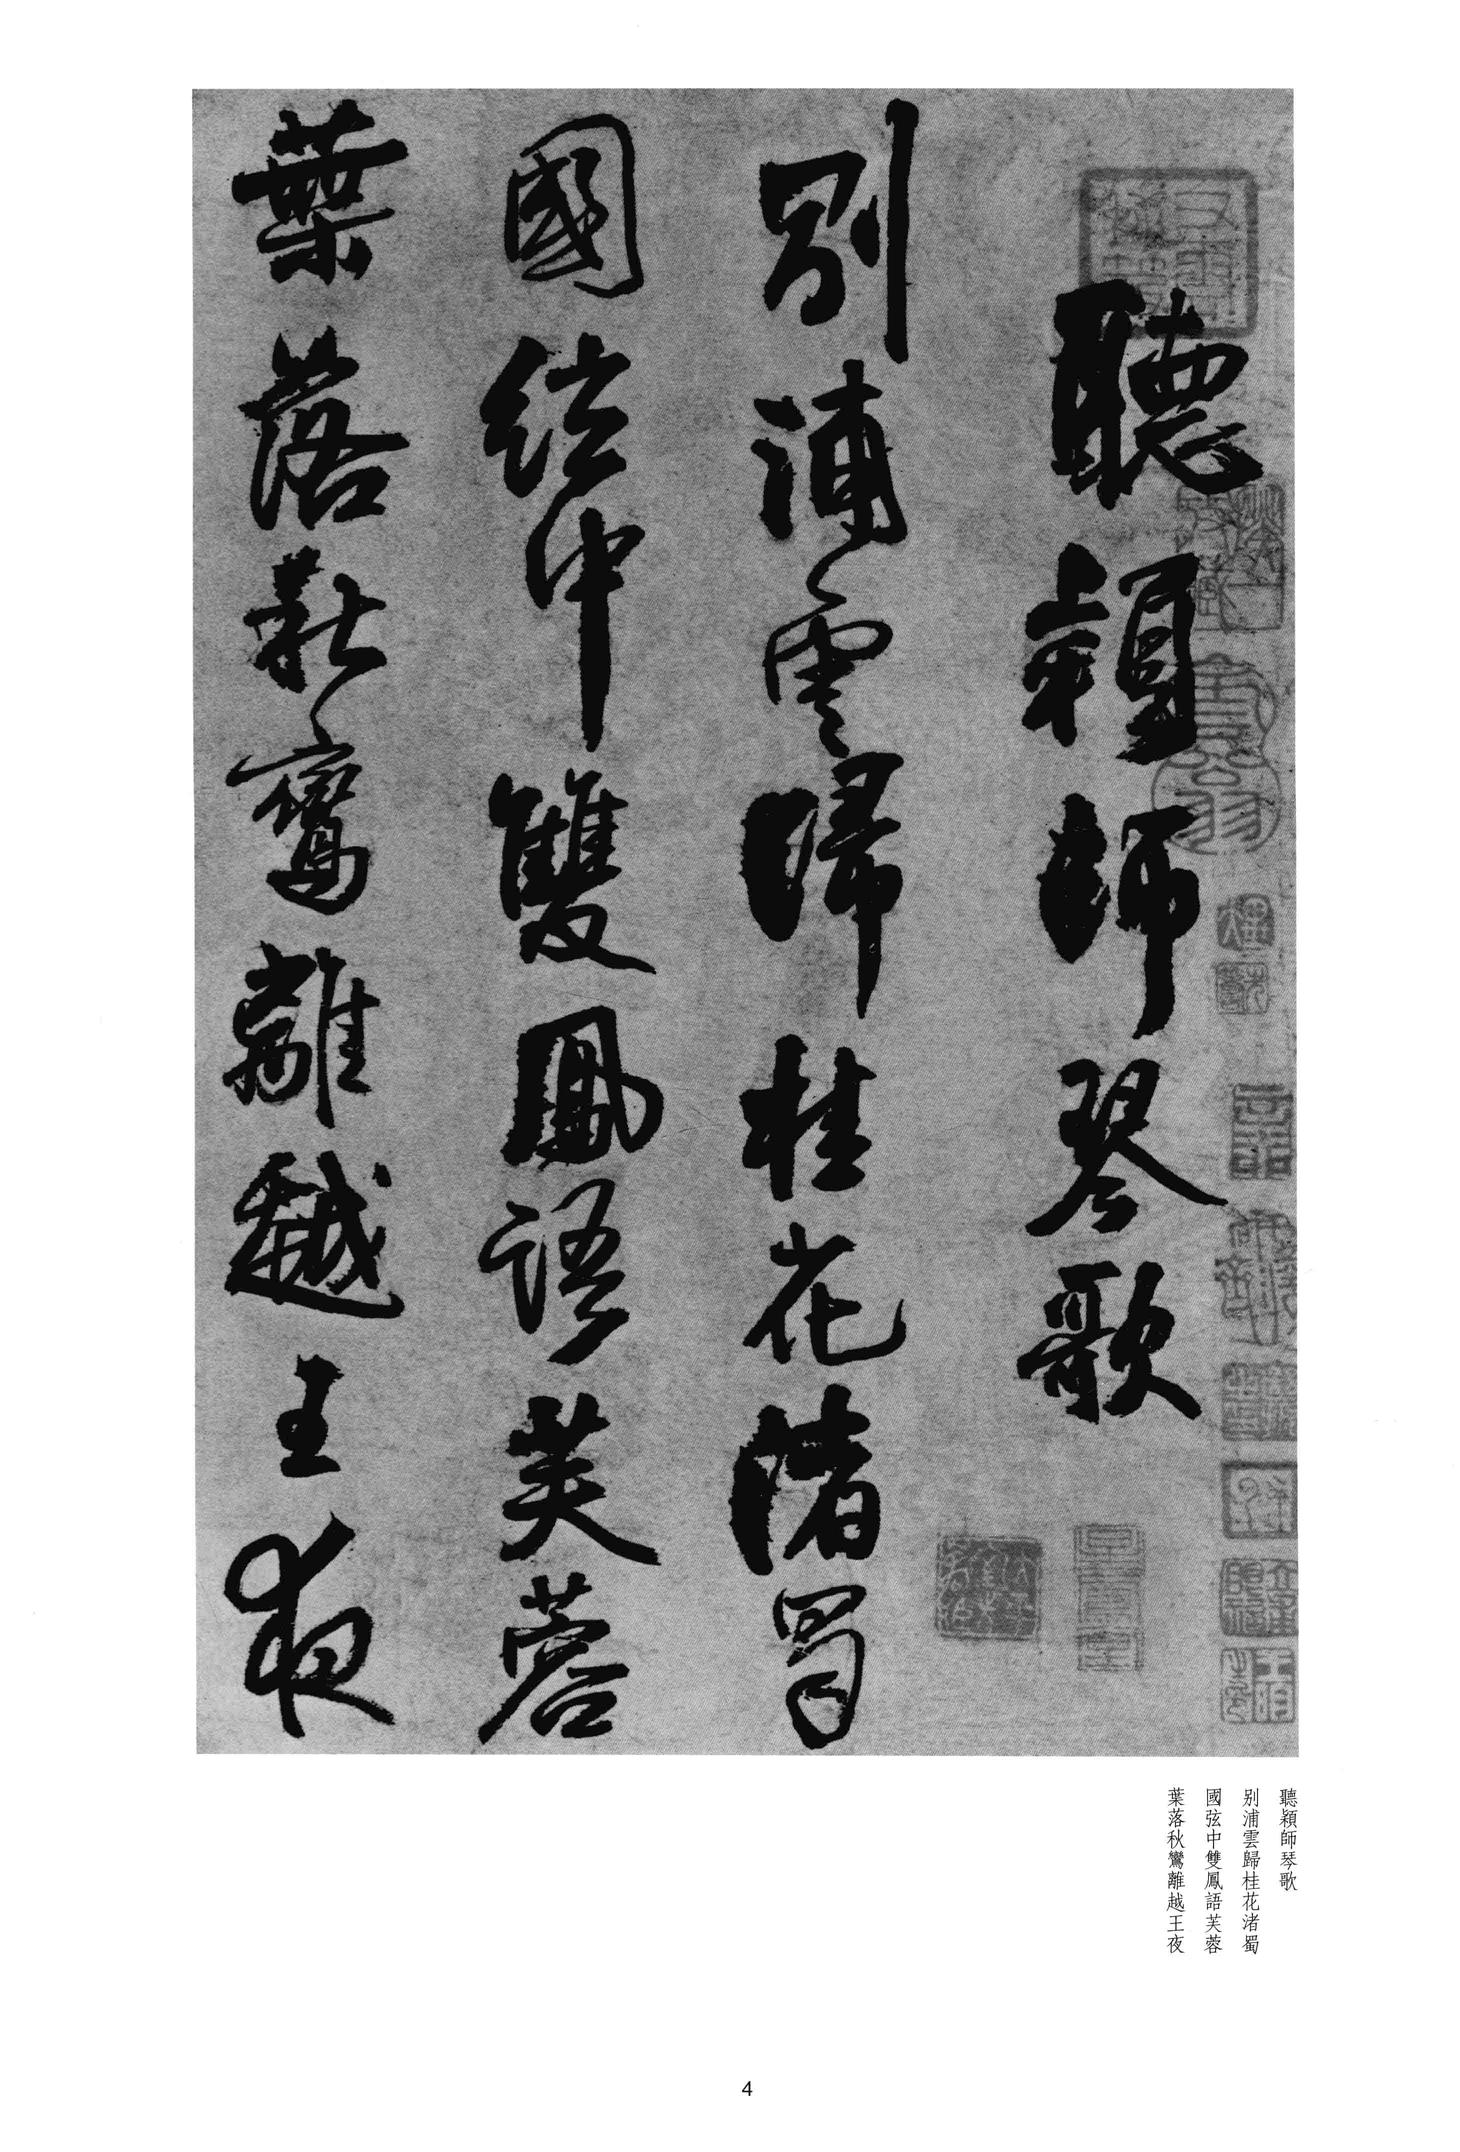 聽穎師琴歌
別浦雲歸桂花渚蜀
國弦中雙鳳語芙蓉
葉落秋鸞離越王夜
聽穎師琴歌
别浦雲歸桂花渚蜀
國弦中雙鳳語芙蓉
葉落秋鸞離越王夜
4